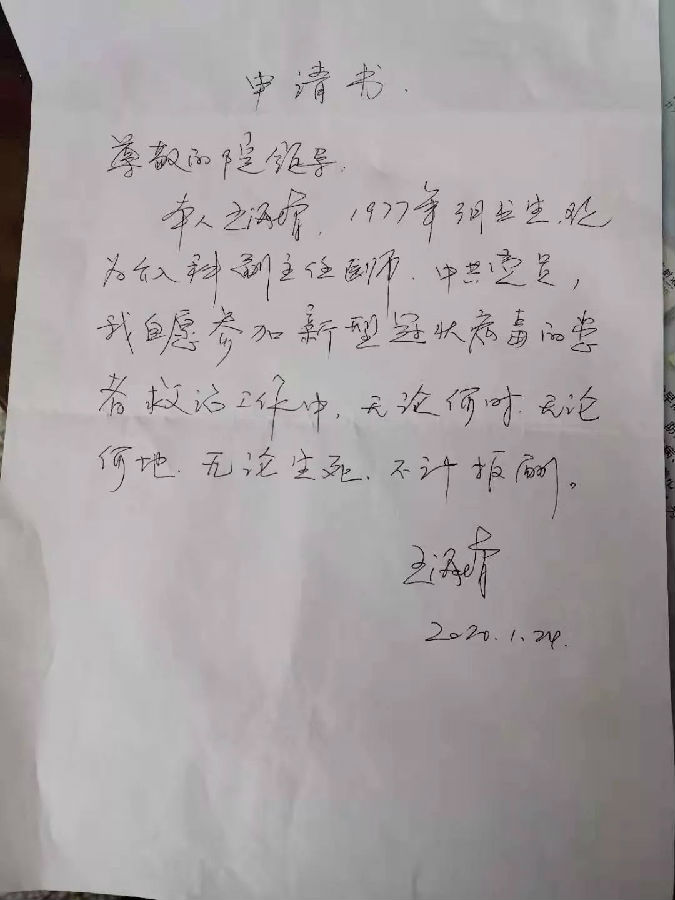 申请书.
尊敬的院领导,
本人王海, 1977年3月出生,现
为 科副主任医师, 中共党员,
我自愿参加新型冠状病毒的患
者救治工作中, 无论何时, 无论
何地, 无论生死, 不计报酬。
王海
2020.1.24.